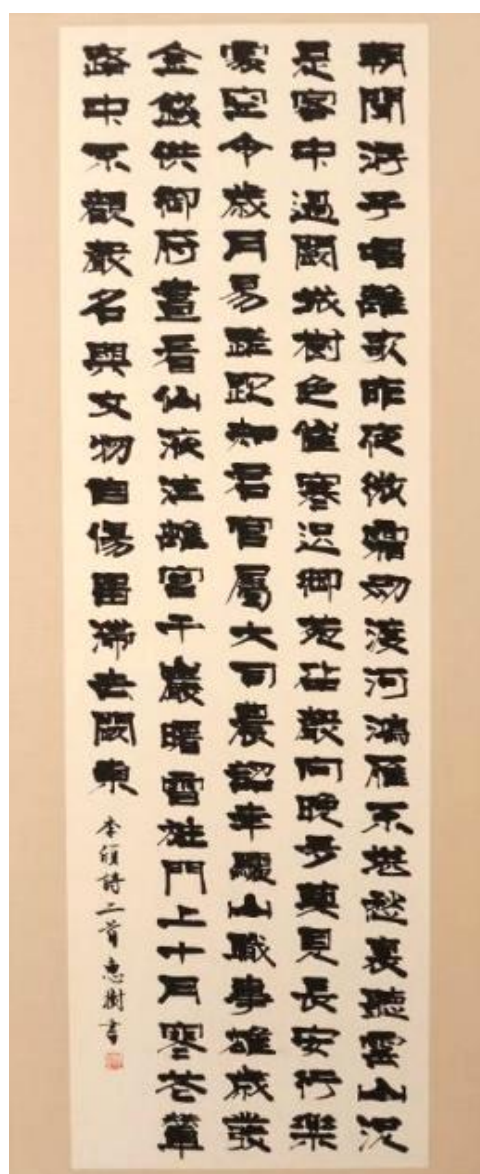 朝聞游子唱離歌昨夜微霜初渡河鴻雁不堪愁裏聽雲山況
是客中過關城樹色催寒近御苑砧聲向晚多莫見長安行樂
處空令歲月易蹉跎知君官屬大司農詔幸驪山職事雄歲發
金錢供御府晝看仙液注離宮千巖曙雪旌門上十月寒花輦
路中不觀聲名與文物自傷留滯去關東
李頎詩二首 惠樹書